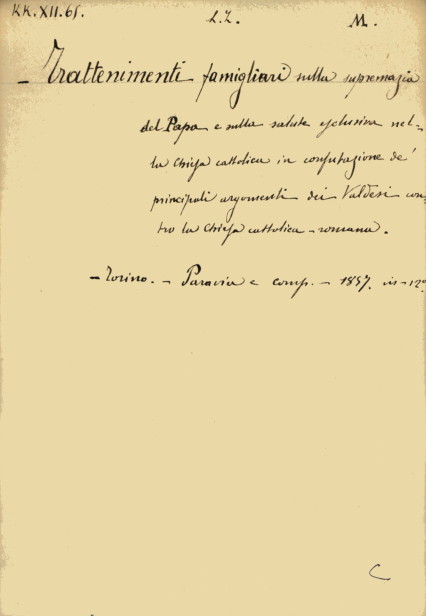 KK.XII.65. L.Z. M.
— Trattenimenti famigliari sulla supremazia
del Papa e sulla salute esclusiva nel-
la Chiesa cattolica in confutazione de'
principali argomenti dei Valdesi con-
tro la Chiesa cattolica-romana.
— Torino. — Paravia e comp. — 1857. in-12°
C